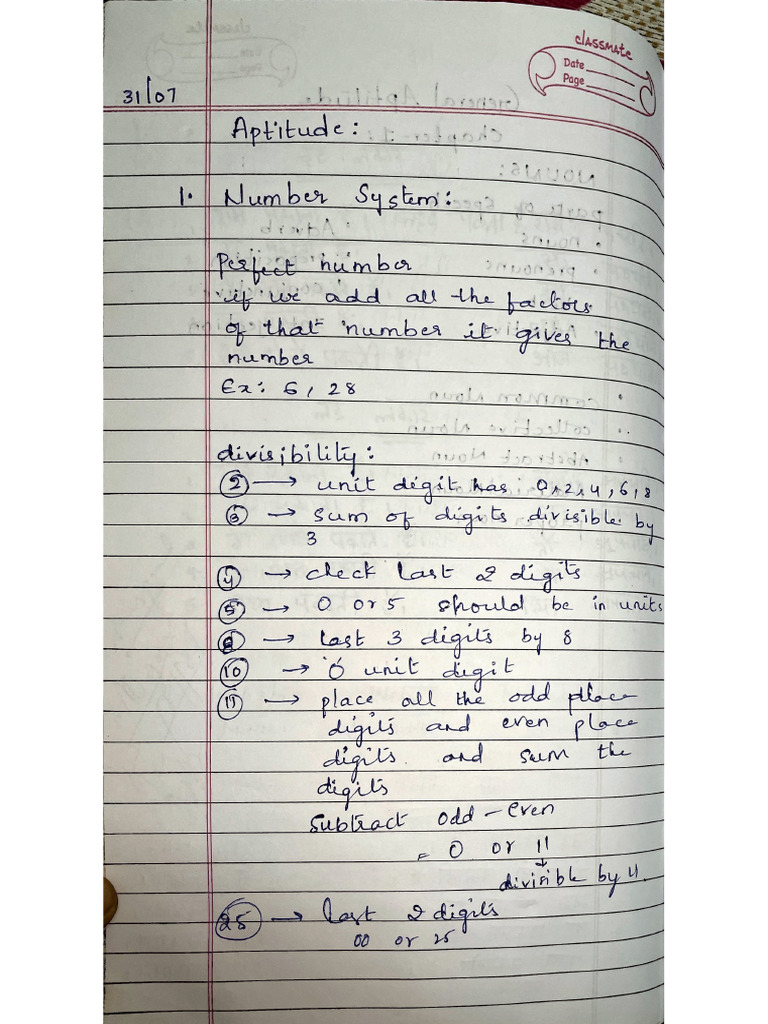 classmate
Date
Page
31/07
Aptitude:
1. Number System:
perfect number
if we add all the factors
of that number it gives the
number
Ex: 6, 28
divisibility:
2 → unit digit has 0,2,4,6,8
3 → sum of digits divisible by
3
4 → check last 2 digits
5 → 0 or 5 should be in units
8 → last 3 digits by 8
10 → '0' unit digit
11 → place all the odd place
digits and even place
digits and sum the
digits
subtract odd - even
= 0 or 11
↓
divisible by 11.
25 → last 2 digits
00 or 25